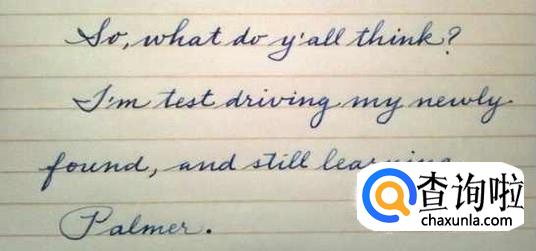 So, what do y'all think?
I'm test driving my newly
found, and still learning
Palmer.
查询啦
chaxunla.com